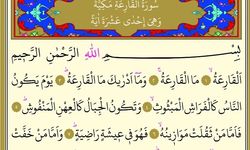 سُورَةُ الْقَارِعَةِ مَكِّيَّةٌ
وَهِيَ إِحْدَى عَشْرَةَ اٰيَةً
بِسْمِ اللّٰهِ الرَّحْمٰنِ الرَّحِيمِ
اَلْقَارِعَةُ ۙ مَا الْقَارِعَةُ ۚ وَمَٓا اَدْرٰيكَ مَا الْقَارِعَةُ ۜ يَوْمَ يَكُونُ
النَّاسُ كَالْفَرَاشِ الْمَبْثُوثِ ۙ وَتَكُونُ الْجِبَالُ كَالْعِهْنِ الْمَنْفُوشِ ۜ
فَاَمَّا مَنْ ثَقُلَتْ مَوَازِينُهُ ۙ فَهُوَ فِي عِيشَةٍ رَاضِيَةٍ ۜ وَاَمَّا مَنْ خَفَّتْ